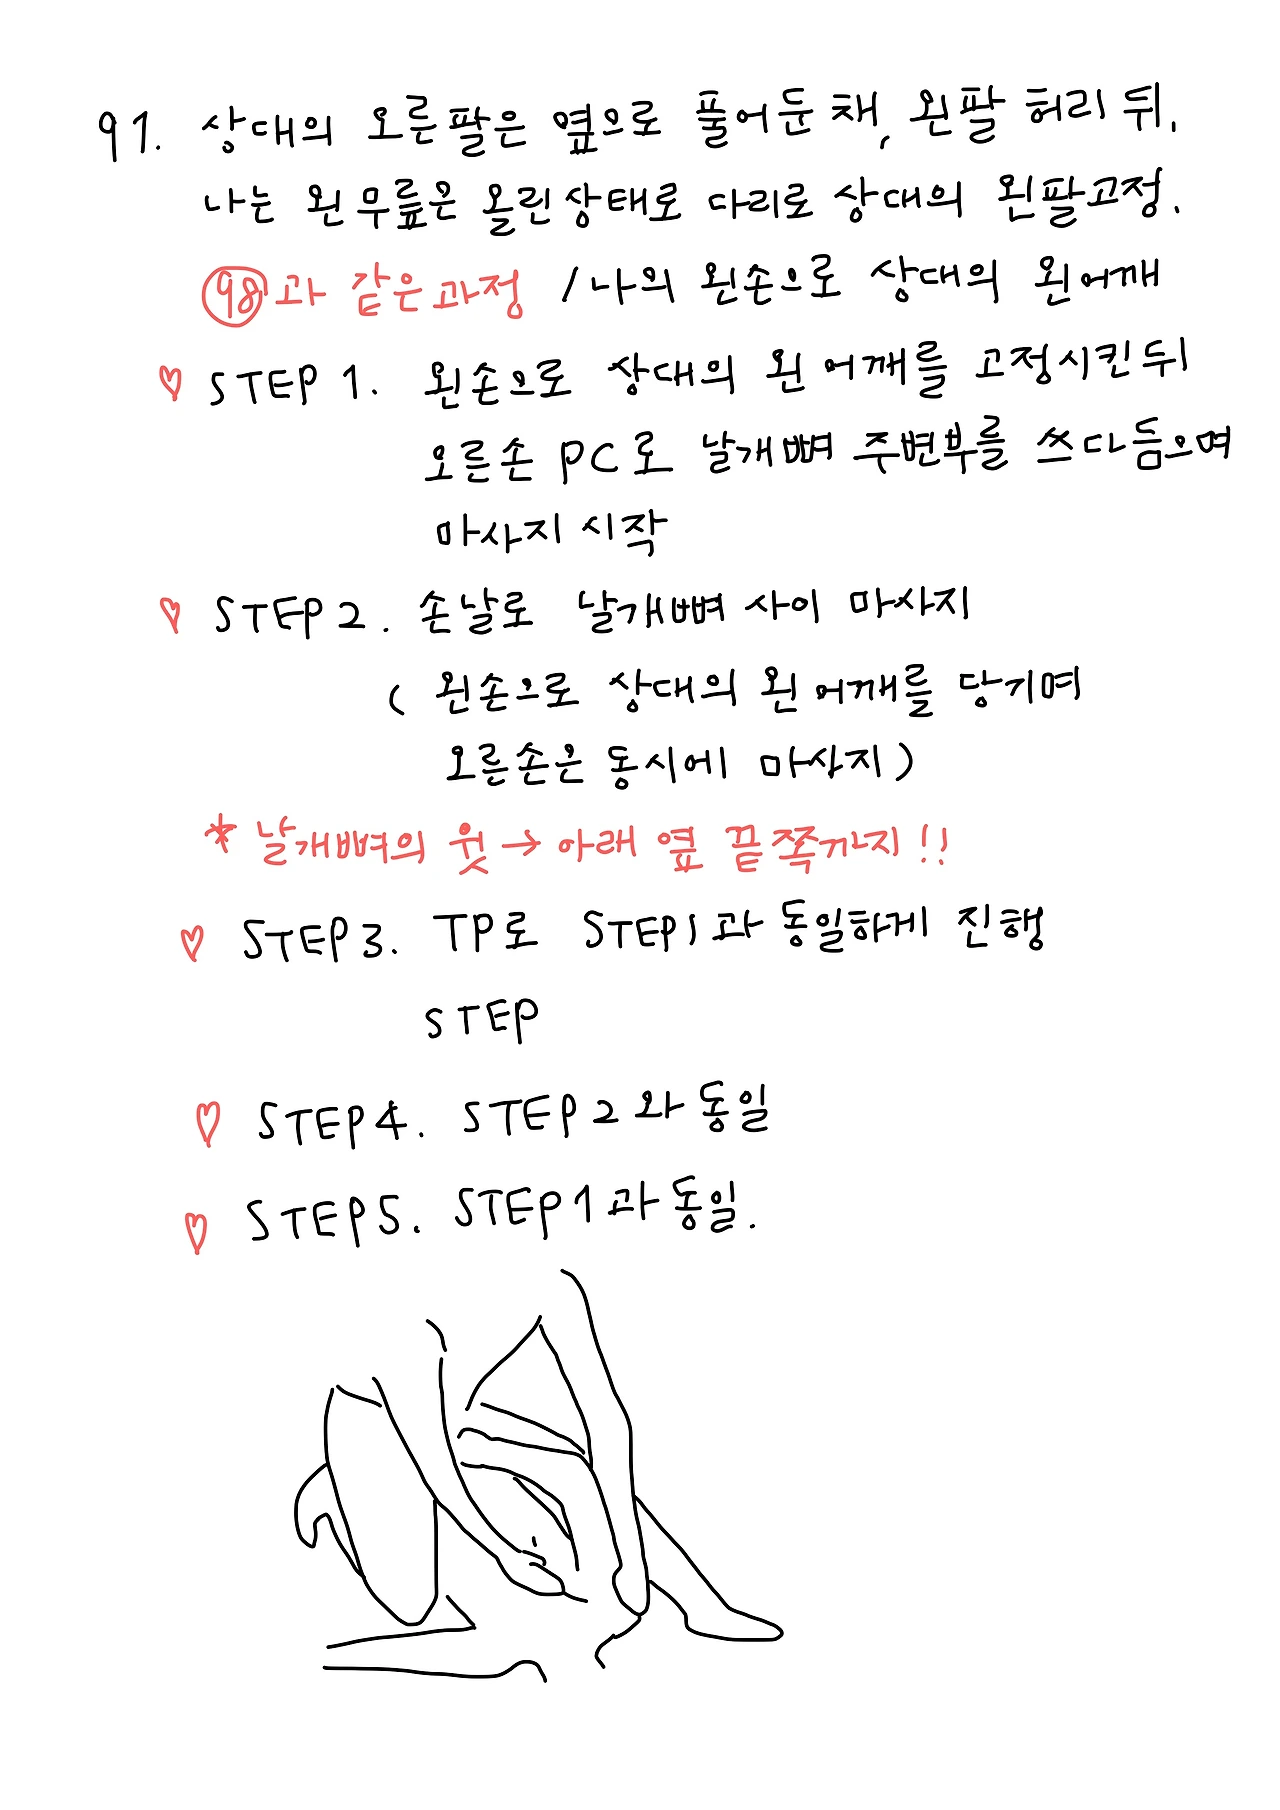 91. 상대의 오른팔은 옆으로 풀어둔 채, 왼팔 허리 뒤.
나는 왼무릎은 올린상태로 다리로 상대의 왼팔고정.
98과 같은과정 / 나의 왼손으로 상대의 왼어깨
♡ STEP 1. 왼손으로 상대의 왼 어깨를 고정시킨뒤
오른손 PC로 날개뼈 주변부를 쓰다듬으며
마사지 시작
♡ STEP 2. 손날로 날개뼈 사이 마사지
( 왼손으로 상대의 왼 어깨를 당기며
오른손은 동시에 마사지 )
* 날개뼈의 윗 → 아래 옆 끝쪽까지!!
♡ STEP3. TP로 STEP1과 동일하게 진행
STEP
♡ STEP4. STEP2와 동일
♡ STEP5. STEP1과 동일.